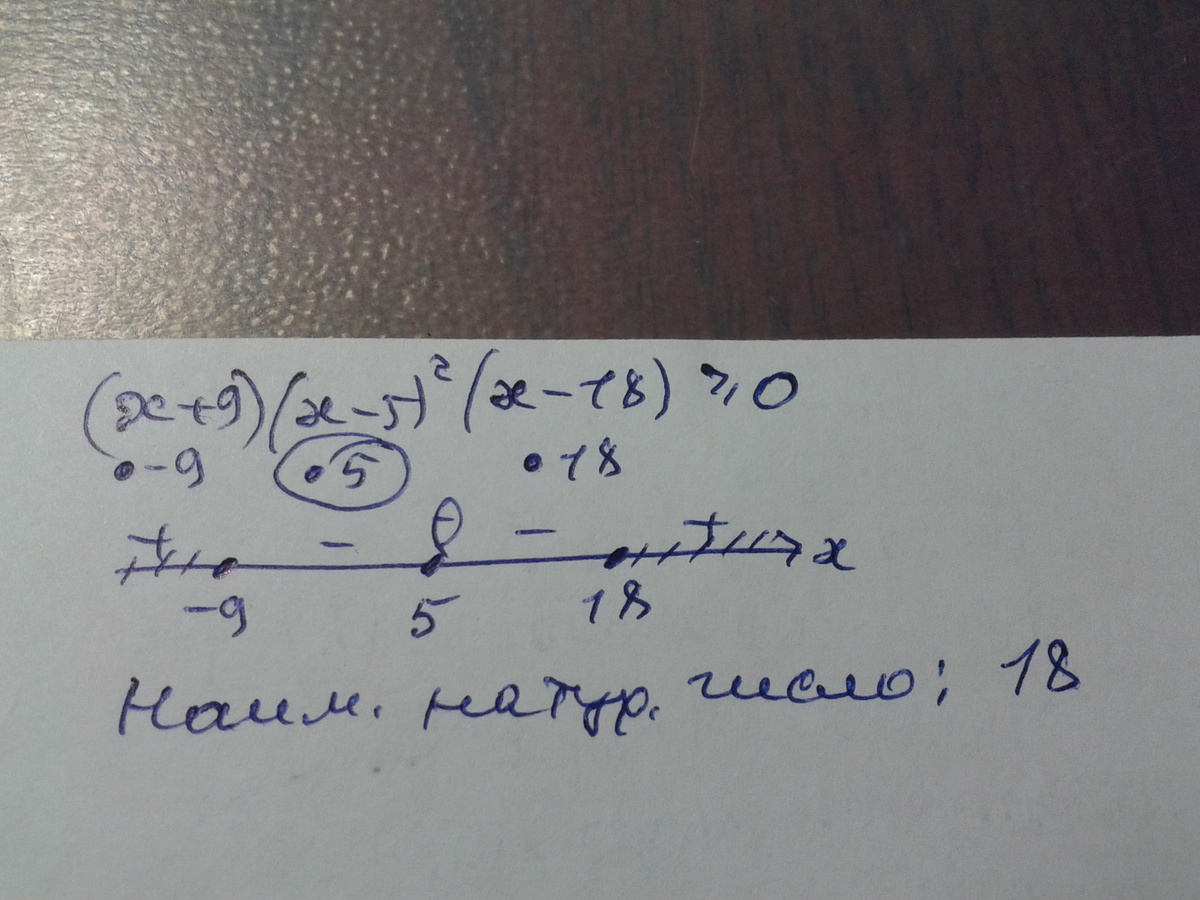 (x+9)(x-5)²(x-18) ≥ 0
• -9 • 5 • 18
+ - - + x
-9 5 18
Наим. натур. число: 18